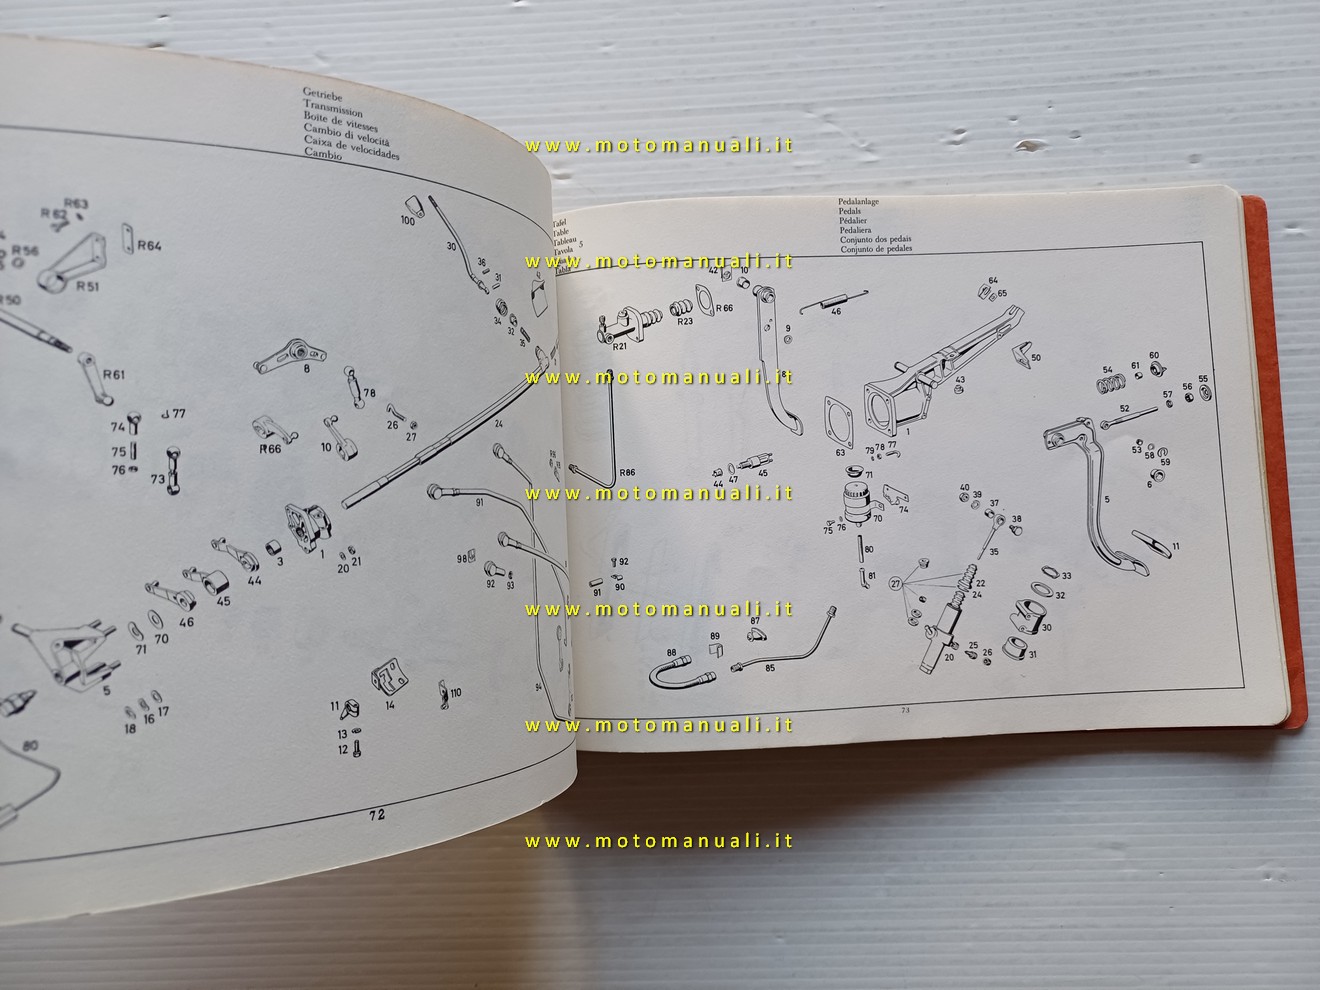 Getriebe
Transmission
Boîte de vitesses
Cambio di velocità
Caixa de velocidades
Cambio
R63
R62
R64
R56
R51
R50
R61
77
74
75
76
73
100
30
36
31
34
32
35
8
78
26
27
R66
10
24
91
1
3
20 21
44
45
46
70
71
5
98
92 93
94
11
14
110
13
12
18 16 17
80
72
Tafel
Table
Tableau 5
Tavola
Pedalanlage
Pedals
Pédalier
Pedaliera
Conjunto dos pedais
Conjunto de pedales
42 10
R66
R23
R21
46
9
8
64
65
50
43
1
63
79 78 77
R86
44 47 45
71
70
74
75 76
80
81
54
61
60
52
57
56
55
53 58 59
6
5
11
40 39 37
38
35
27
22
24
33
32
30
31
20
25 26
92
91 90
87
89
88
85
73
www.motomanuali.it
www.motomanuali.it
www.motomanuali.it
www.motomanuali.it
www.motomanuali.it
www.motomanuali.it
www.motomanuali.it